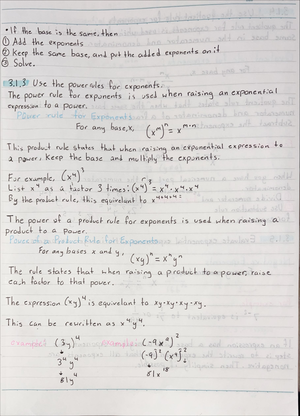 • If the base is the same, then
① Add the exponents
② Keep the same base, and put the added exponents on it
③ Solve.
3.1.3 Use the power rules for exponents.
The power rule for exponents is used when raising an exponential
expression to a power.
Power rule for Exponents
For any base, x, (xᵐ)ⁿ = xᵐ·ⁿ
This product rule states that when raising an exponential expression to
a power. Keep the base and multiply the exponents.
For example, (x⁴)³
List x⁴ as a factor 3 times: (x⁴)³ = x⁴·x⁴·x⁴
By the product rule, this equivalent to x⁴⁺⁴⁺⁴
The power of a product rule for exponents is used when raising a
product to a power.
Power of a Product Rule for Exponents
For any bases x and y, (xy)ⁿ = xⁿyⁿ
The rule states that when raising a product to a power, raise
each factor to that power.
The expression (xy)⁴ is equivelant to xy·xy·xy·xy.
This can be rewritten as x⁴y⁴.
(3y)⁴ (-9x⁹)²
3⁴y⁴ (-9)²(x⁹)²
81y⁴ 81x¹⁸